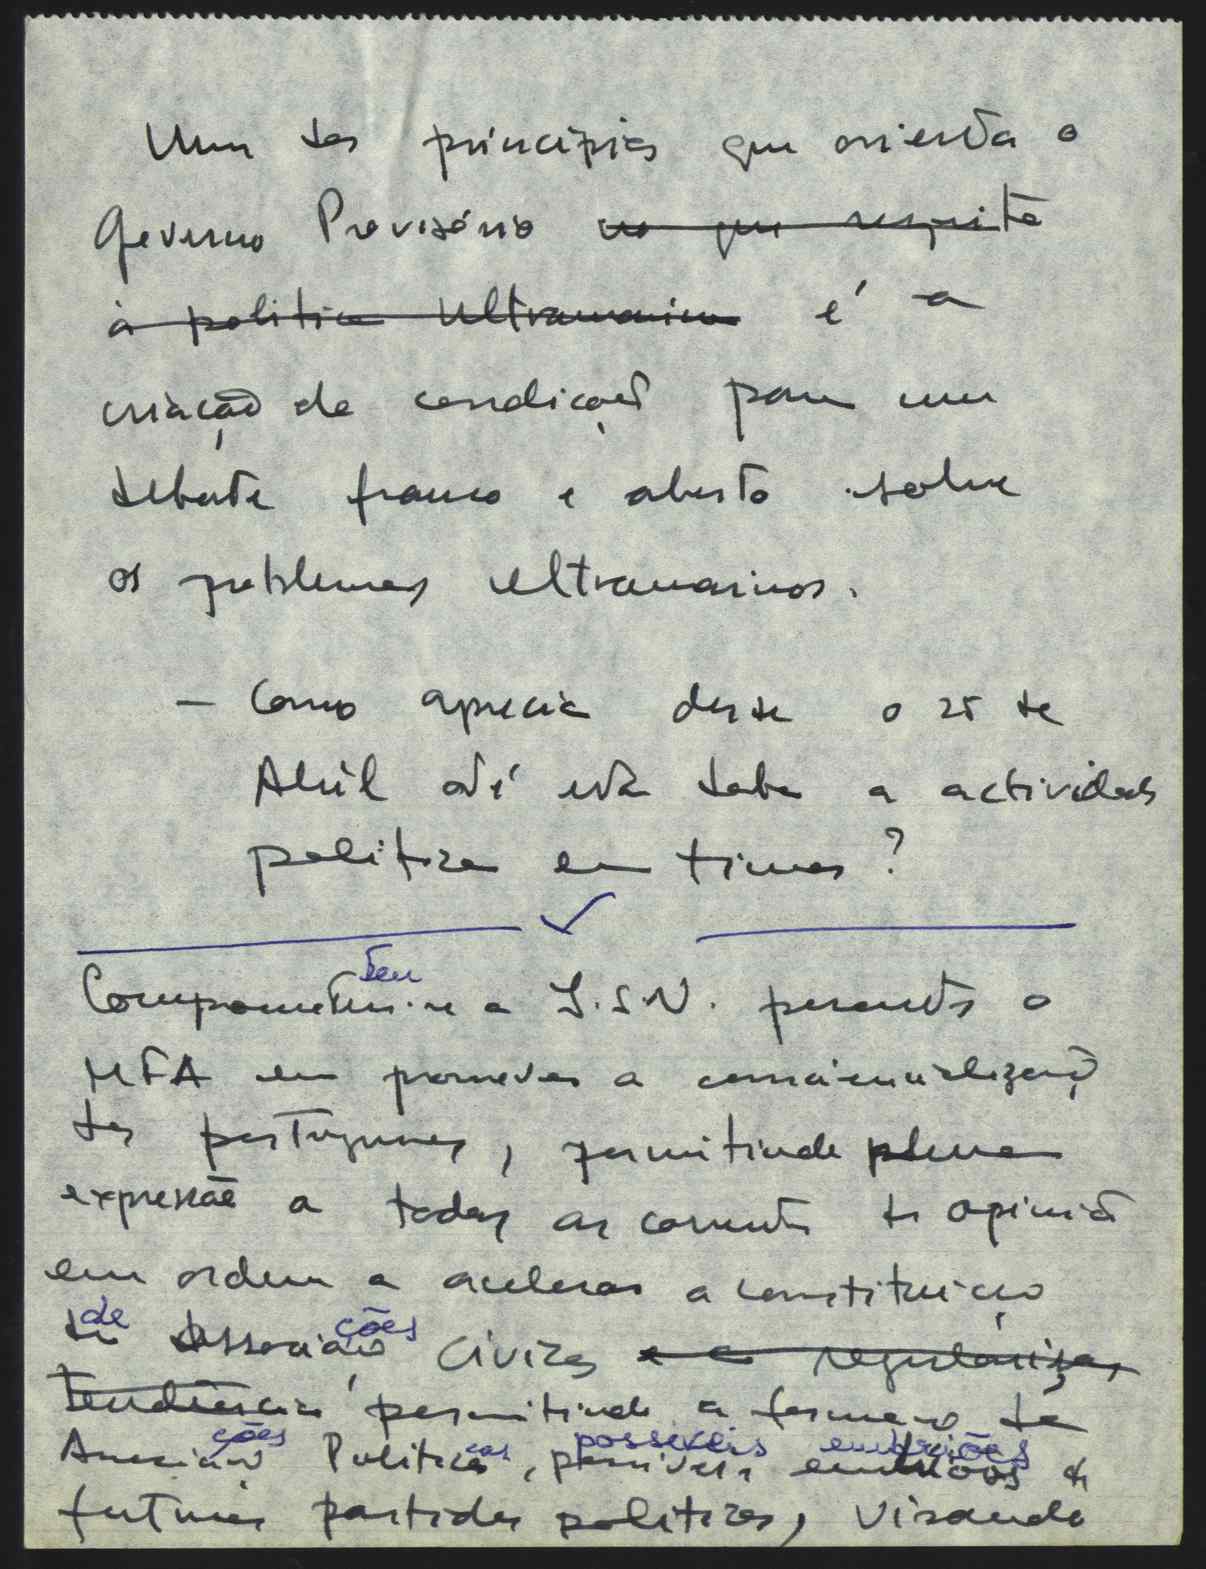 Um dos princípios que orienta o
Governo Provisório no que respeita
à politica Ultramarina é a
criação de condições para um
debate franco e aberto sobre
os problemas ultramarinos.
— Como aprecia desde o 25 de
Abril até esta data a actividade
politica em timor?
teu
Comprometeu-se a J.S.N. perante o
MFA em promover a consciencialização
dos portugueses, permitindo plena
expressão a todas as correntes de opinião
em ordem a acelerar a constituição
de ções
de Associação Civicas e a regularizar
Tendências permitindo a formação de
ções cas possíveis embriões
Associação Politicas, possíveis embriões de
futuros partidos politicos, visando